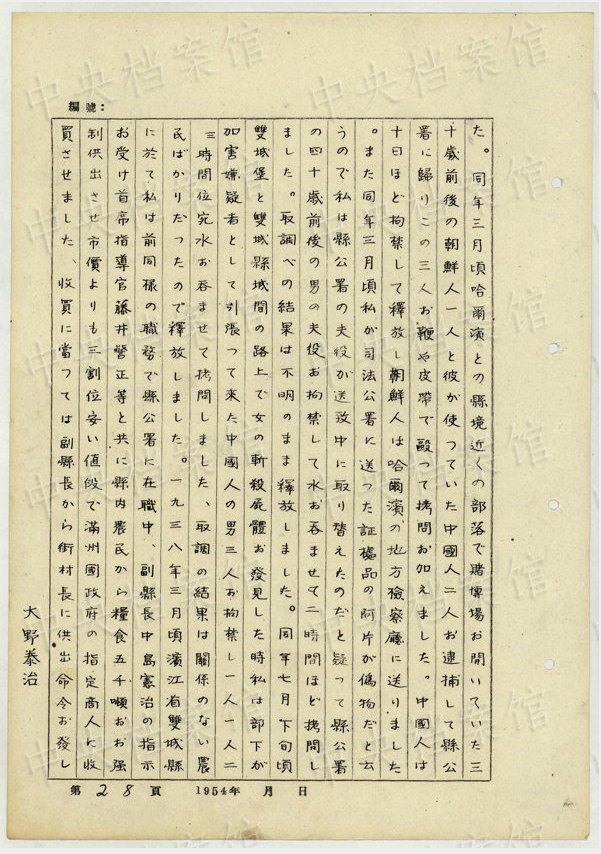 編號：
た。同年三月頃哈爾濱との縣境近くの部落で賭博場お開いていた三
十歳前後の朝鮮人一人と彼が使つていた中國人二人お逮捕して縣公
署に歸りこの三人お鞭や皮帶で毆つて拷問お加えました。中國人は
十日ほど拘禁して釋放し朝鮮人は哈爾濱の地方檢察廳に送りました
。また同年三月頃私が司法公署に送つた証據品の阿片が偽物だと云
うので私は縣公署の夫役が送致中に取り替えたのだと疑つて縣公署
の四十歳前後の男の夫役お拘禁して水お呑ませて二時間ほど拷問し
ました。取調べの結果は不明のまま釋放しました。同年七月下旬頃
雙城堡と雙城縣城間の路上で女の斬殺屍體お發見した時私は部下が
加害嫌疑者として引張つて來た中國人の男三人お拘禁し一人一人二
三時間位宛水お呑ませて拷問しました、取調の結果は關係のない農
民ばかりだつたので釋放しました。一九三八年三月頃濱江省雙城縣
に於て私は前同樣の職務で縣公署に在職中、副縣長中島憲治の指示
お受け首席指導官藤井營正等と共に縣内農民から糧食五千噸おお强
制供出させ市價よりも三割位安い値段で滿州國政府の指定商人に收
買させました、收買に當つては副縣長から街村長に供出命令お發し
大野泰治
第28頁 1954年 月 日
中央档案馆